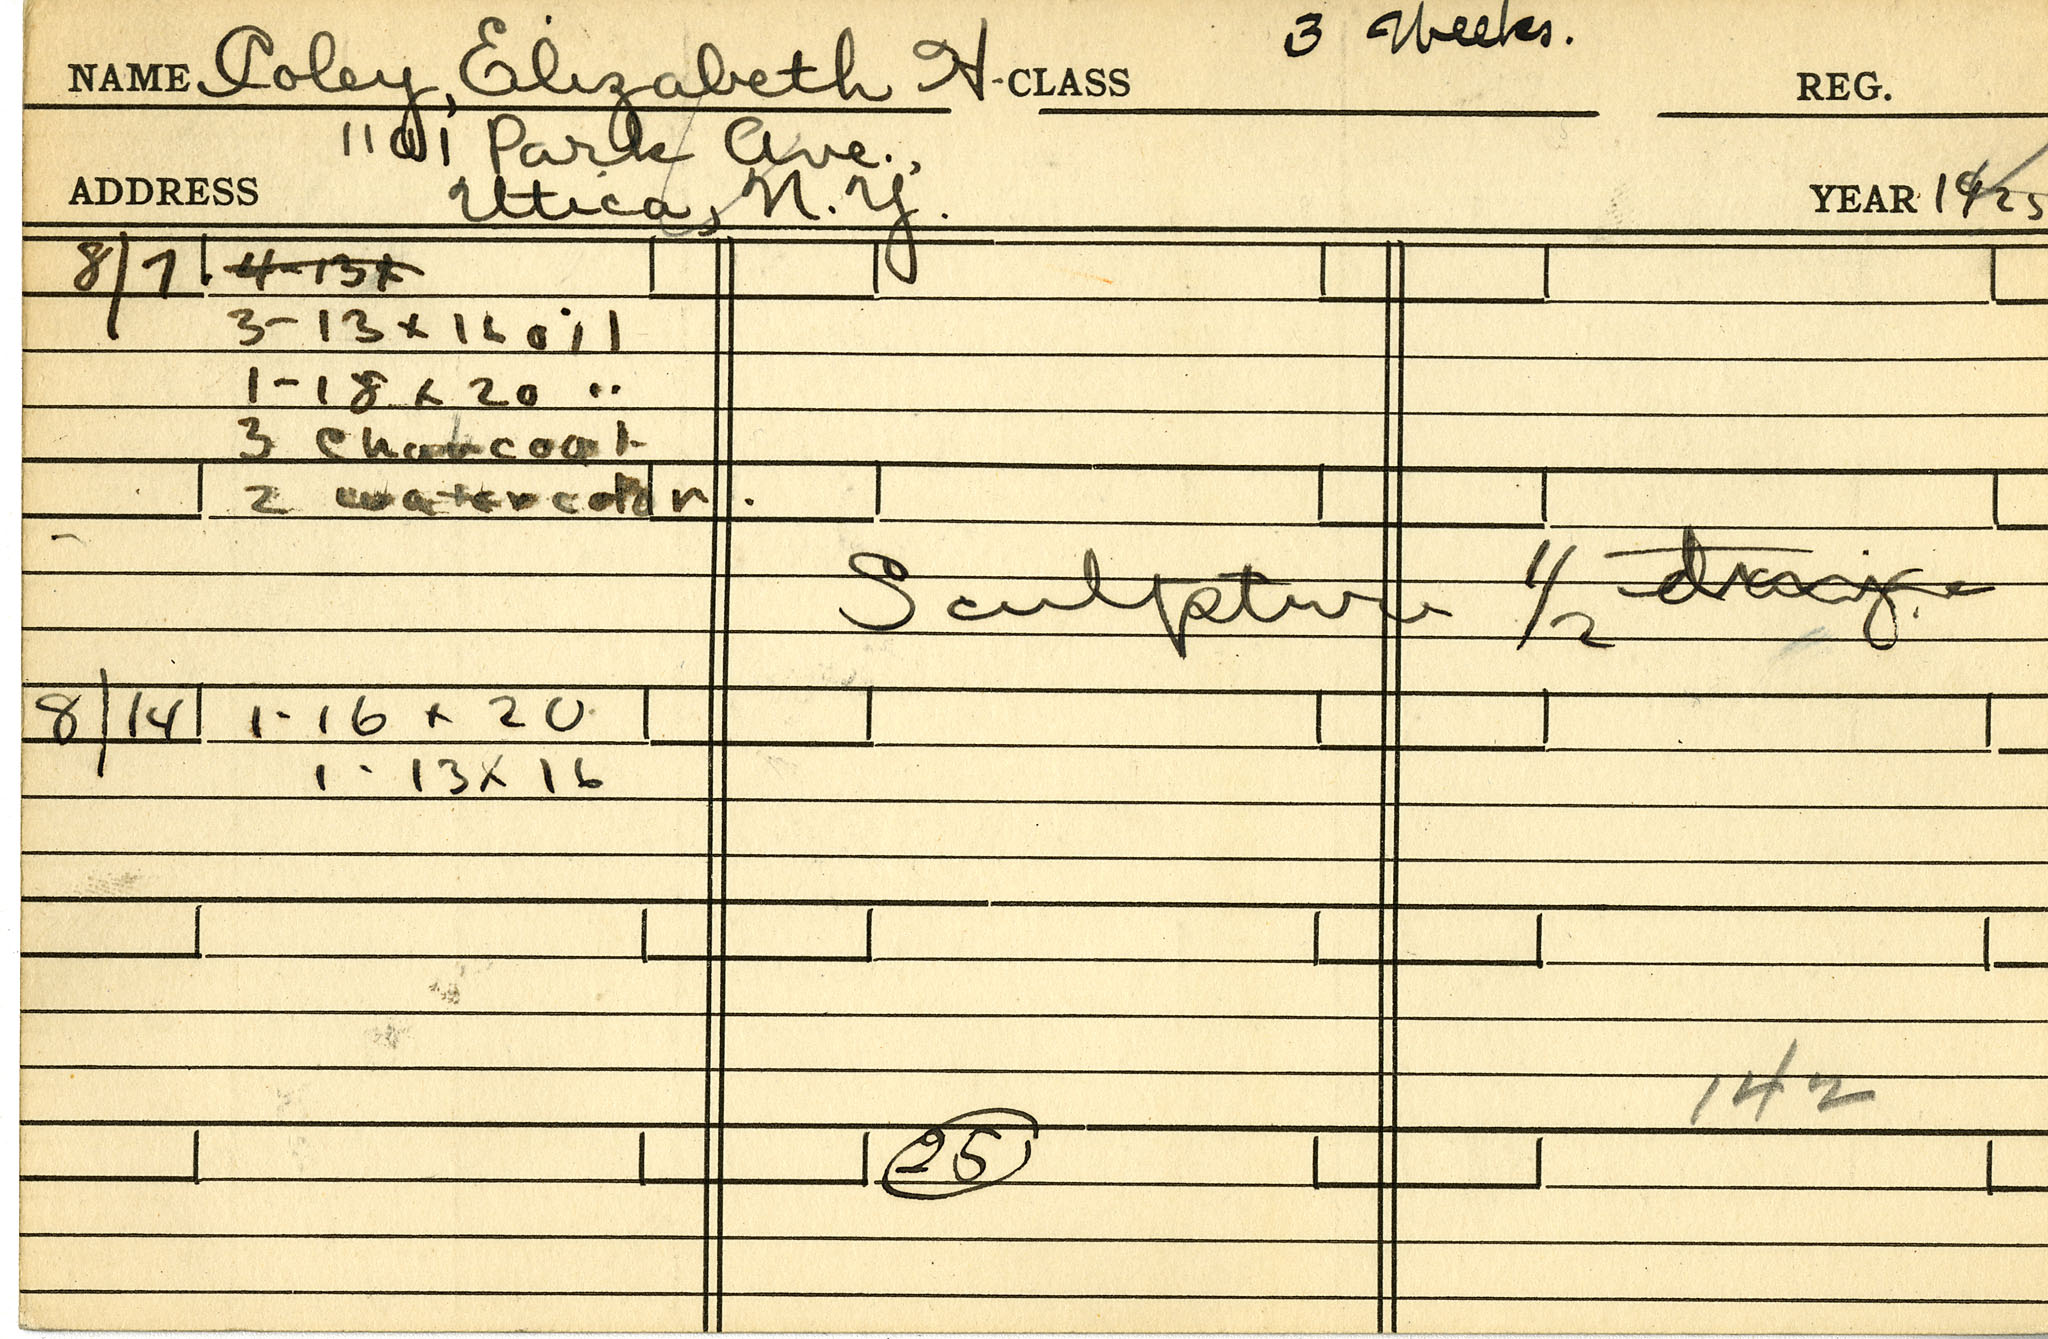 3 Weeks.
NAME Poley, Elizabeth H. CLASS REG.
1101 Park Ave.,
ADDRESS Utica, N.Y. YEAR 1925
8/7 4-13x
3-13 x 16 oil
1-18 x 20 "
3 charcoal
2 watercolor.
Sculpture 1/2
8/14 1-16 x 20
1-13 x 16
142
25